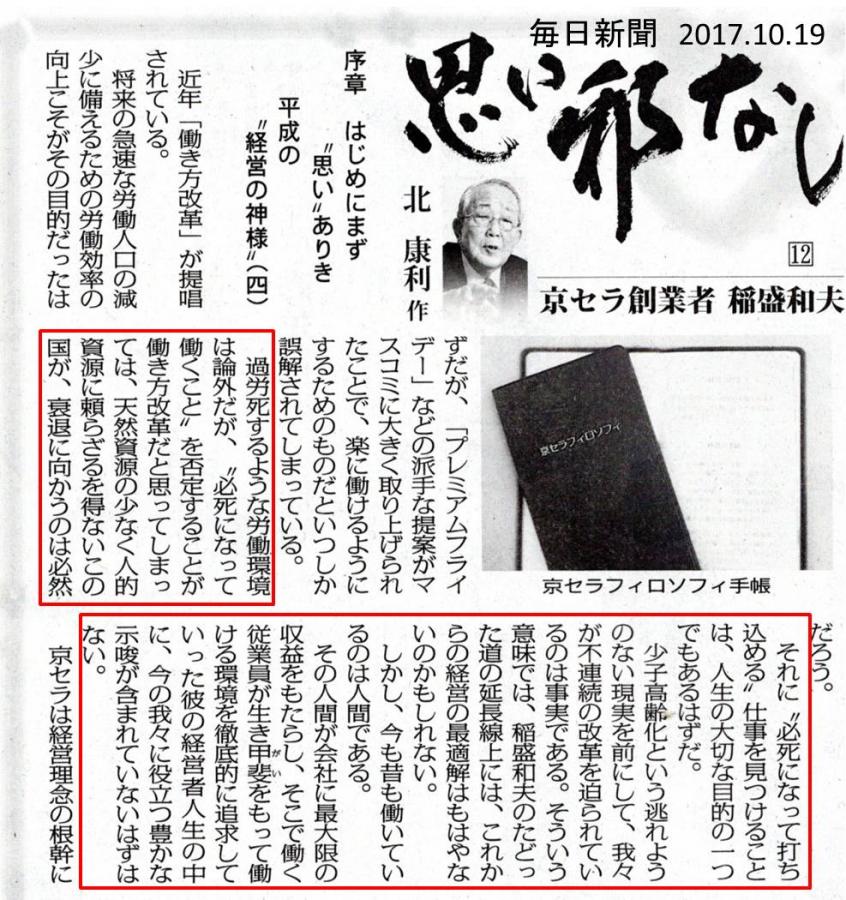 毎日新聞 2017.10.19
思い邪なし
12
京セラ創業者 稲盛和夫
北 康利 作
序章 はじめにまず
〝思い〟ありき
平成の
〝経営の神様〟(四)
近年「働き方改革」が提唱
されている。
将来の急速な労働人口の減
少に備えるための労働効率の
向上こそがその目的だったは
京セラフィロソフィ
京セラフィロソフィ手帳
ずだが、「プレミアムフライ
デー」などの派手な提案がマ
スコミに大きく取り上げられ
たことで、楽に働けるように
するためのものだといつしか
誤解されてしまっている。
過労死するような労働環境
は論外だが、〝必死になって
働くこと〟を否定することが
働き方改革だと思ってしまっ
ては、天然資源の少なく人的
資源に頼らざるを得ないこの
国が、衰退に向かうのは必然
だろう。
それに〝必死になって打ち
込める〟仕事を見つけること
は、人生の大切な目的の一つ
でもあるはずだ。
少子高齢化という逃れよう
のない現実を前にして、我々
が不連続の改革を迫られてい
るのは事実である。そういう
意味では、稲盛和夫のたどっ
た道の延長線上には、これか
らの経営の最適解はもはやな
いのかもしれない。
しかし、今も昔も働いてい
るのは人間である。
その人間が会社に最大限の
収益をもたらし、そこで働く
従業員が生き甲斐(がい)をもって働
ける環境を徹底的に追求して
いった彼の経営者人生の中
に、今の我々に役立つ豊かな
示唆が含まれていないはずは
ない。
京セラは経営理念の根幹に